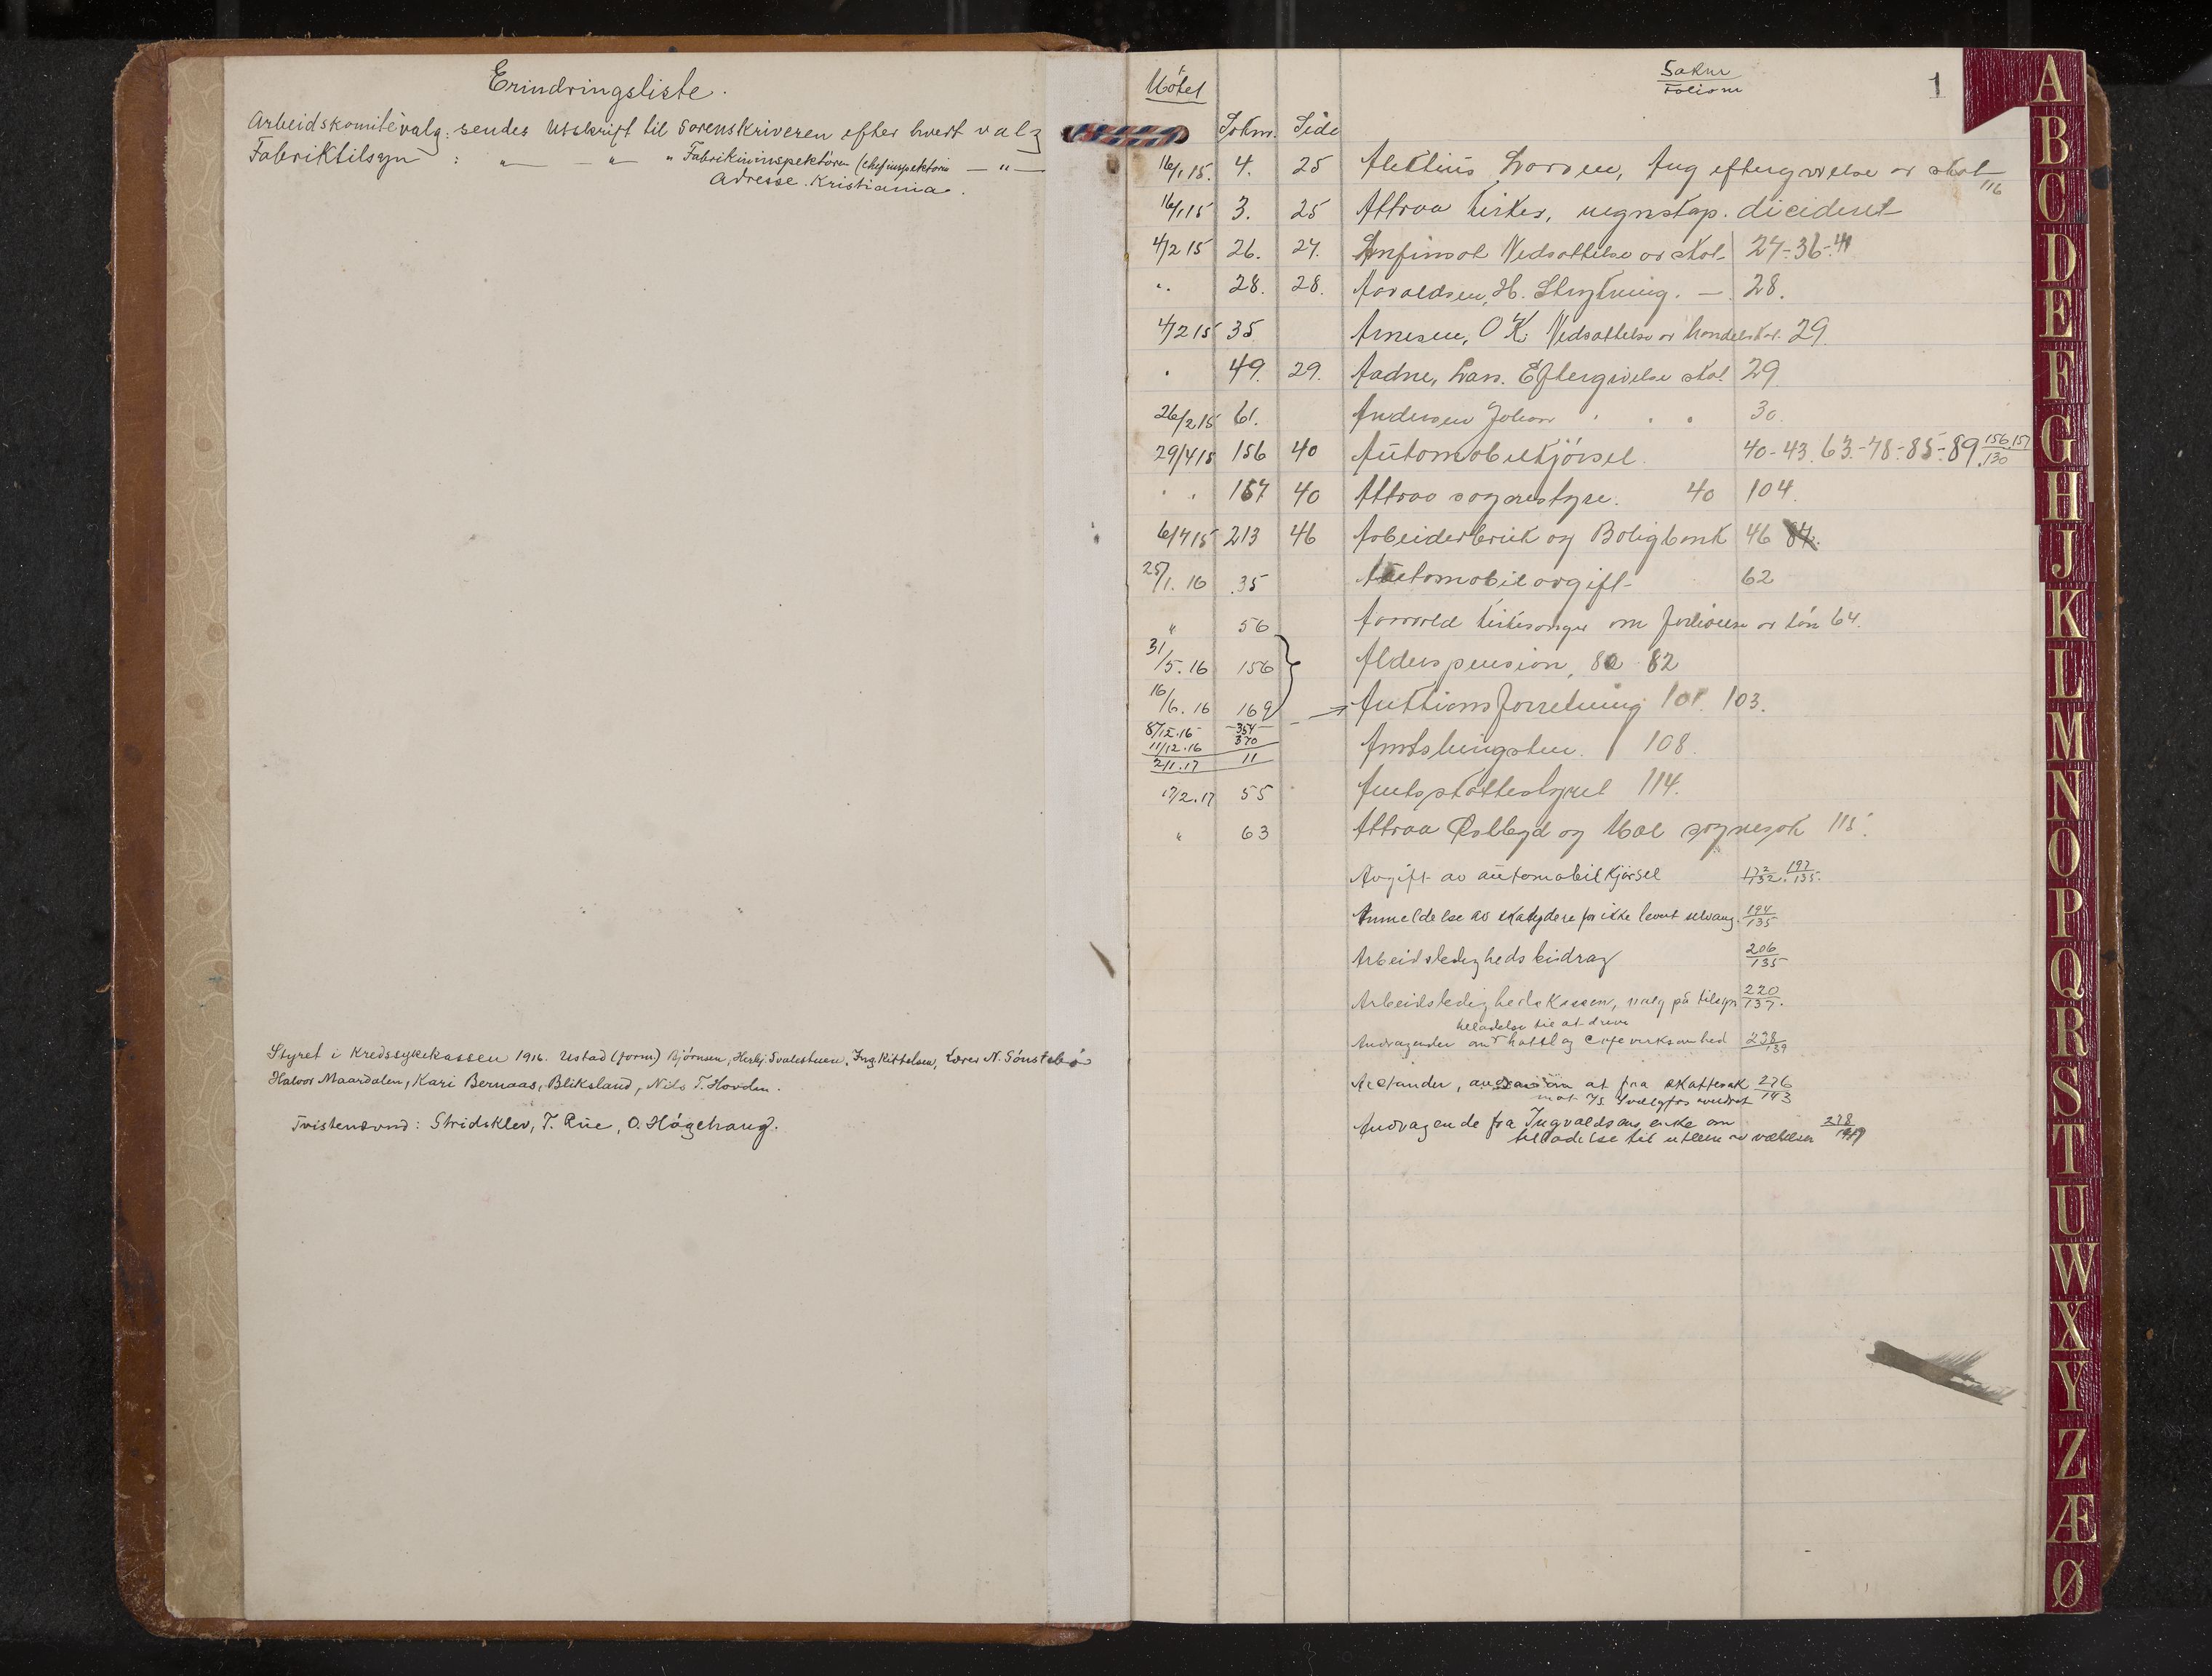 Erindringsliste.
Arbeidskomitévalg: sendes Utskrift til Sorenskriveren efter hvert valg
Fabriktilsyn : " — " — " Fabrikinspektören (chefinspektören — " —
Adresse Kristiania.
Styret i Kredssykekassen 1916. Ustad (form) Bjørnsen, Herbj. Svalestuen, Ing. Kittelsen, Lærer N. Gönstebö
Halvor Maardalen, Kari Bernaas, Bliksland, Nils T. Hovden.
Tvistenævnd: Stridsklev, T. Rue, O. Högehaug.
1
Mötet Sakn. Side Saknr Folionr
16/1 15. 4. 25 Alettius Larsen, Ang eftergivelse av skat 116
16/1 15 3. 25 Attraa kirkes, regnskap. decideret
4/2 15 26. 27. Nedsættelse av skat 27-36-41
" 28. 28. Aaraldsen, H. Strykning. — 28.
4/2 15 35 Arnesen, O K. Nedsættelse av handelskat. 29.
" 49. 29. Aadne, Lars. Eftergivelse skat 29
26/2 15 61. Andersen Johan " " " 30.
29/4 15 156 40 Automobilkjörsel. 40-43. 63.-78-85-89. 156.157/130
" " 157 40 Attraa sognestyre. 40 104.
6/7 15 213 46 Arbeiderbruk og Boligbank 46 84.
25/1. 16 35 Automobilavgift 62
" 56 kirkesanger om forhöielse av lön 64.
31/5. 16 156 Alderspension, 80 82
16/6. 16 169 Auktionsforretning 101. 103.
8/12. 16 354
11/12. 16 370 Amtshingsten. 108.
2/1. 17 11
17/2. 17 55 Amtsskattestyret 114.
" 63 Attraa Östbygd og Mæl sognesak 115.
Avgift av automobilkjörsel 172/132. 197/135.
Anmeldelse av skatydere for ikke levert selvang. 194/135
Arbeidsledighedsbidrag 206/135
Arbeidsledighedskassen, valg på tilsyn 220/137.
tilladelse til at drive
Andragender om hotel og Cafe virksomhed 238/139
at fra skattesak 276/143
mot A/S
Andragende fra Ingvaldsens enke om 278/144
tilladelse til utleie av værelser
A
B
C
D
E
F
G
H
J
K
L
M
N
O
P
Q
R
S
T
U
W
X
Y
Z
Æ
Ø